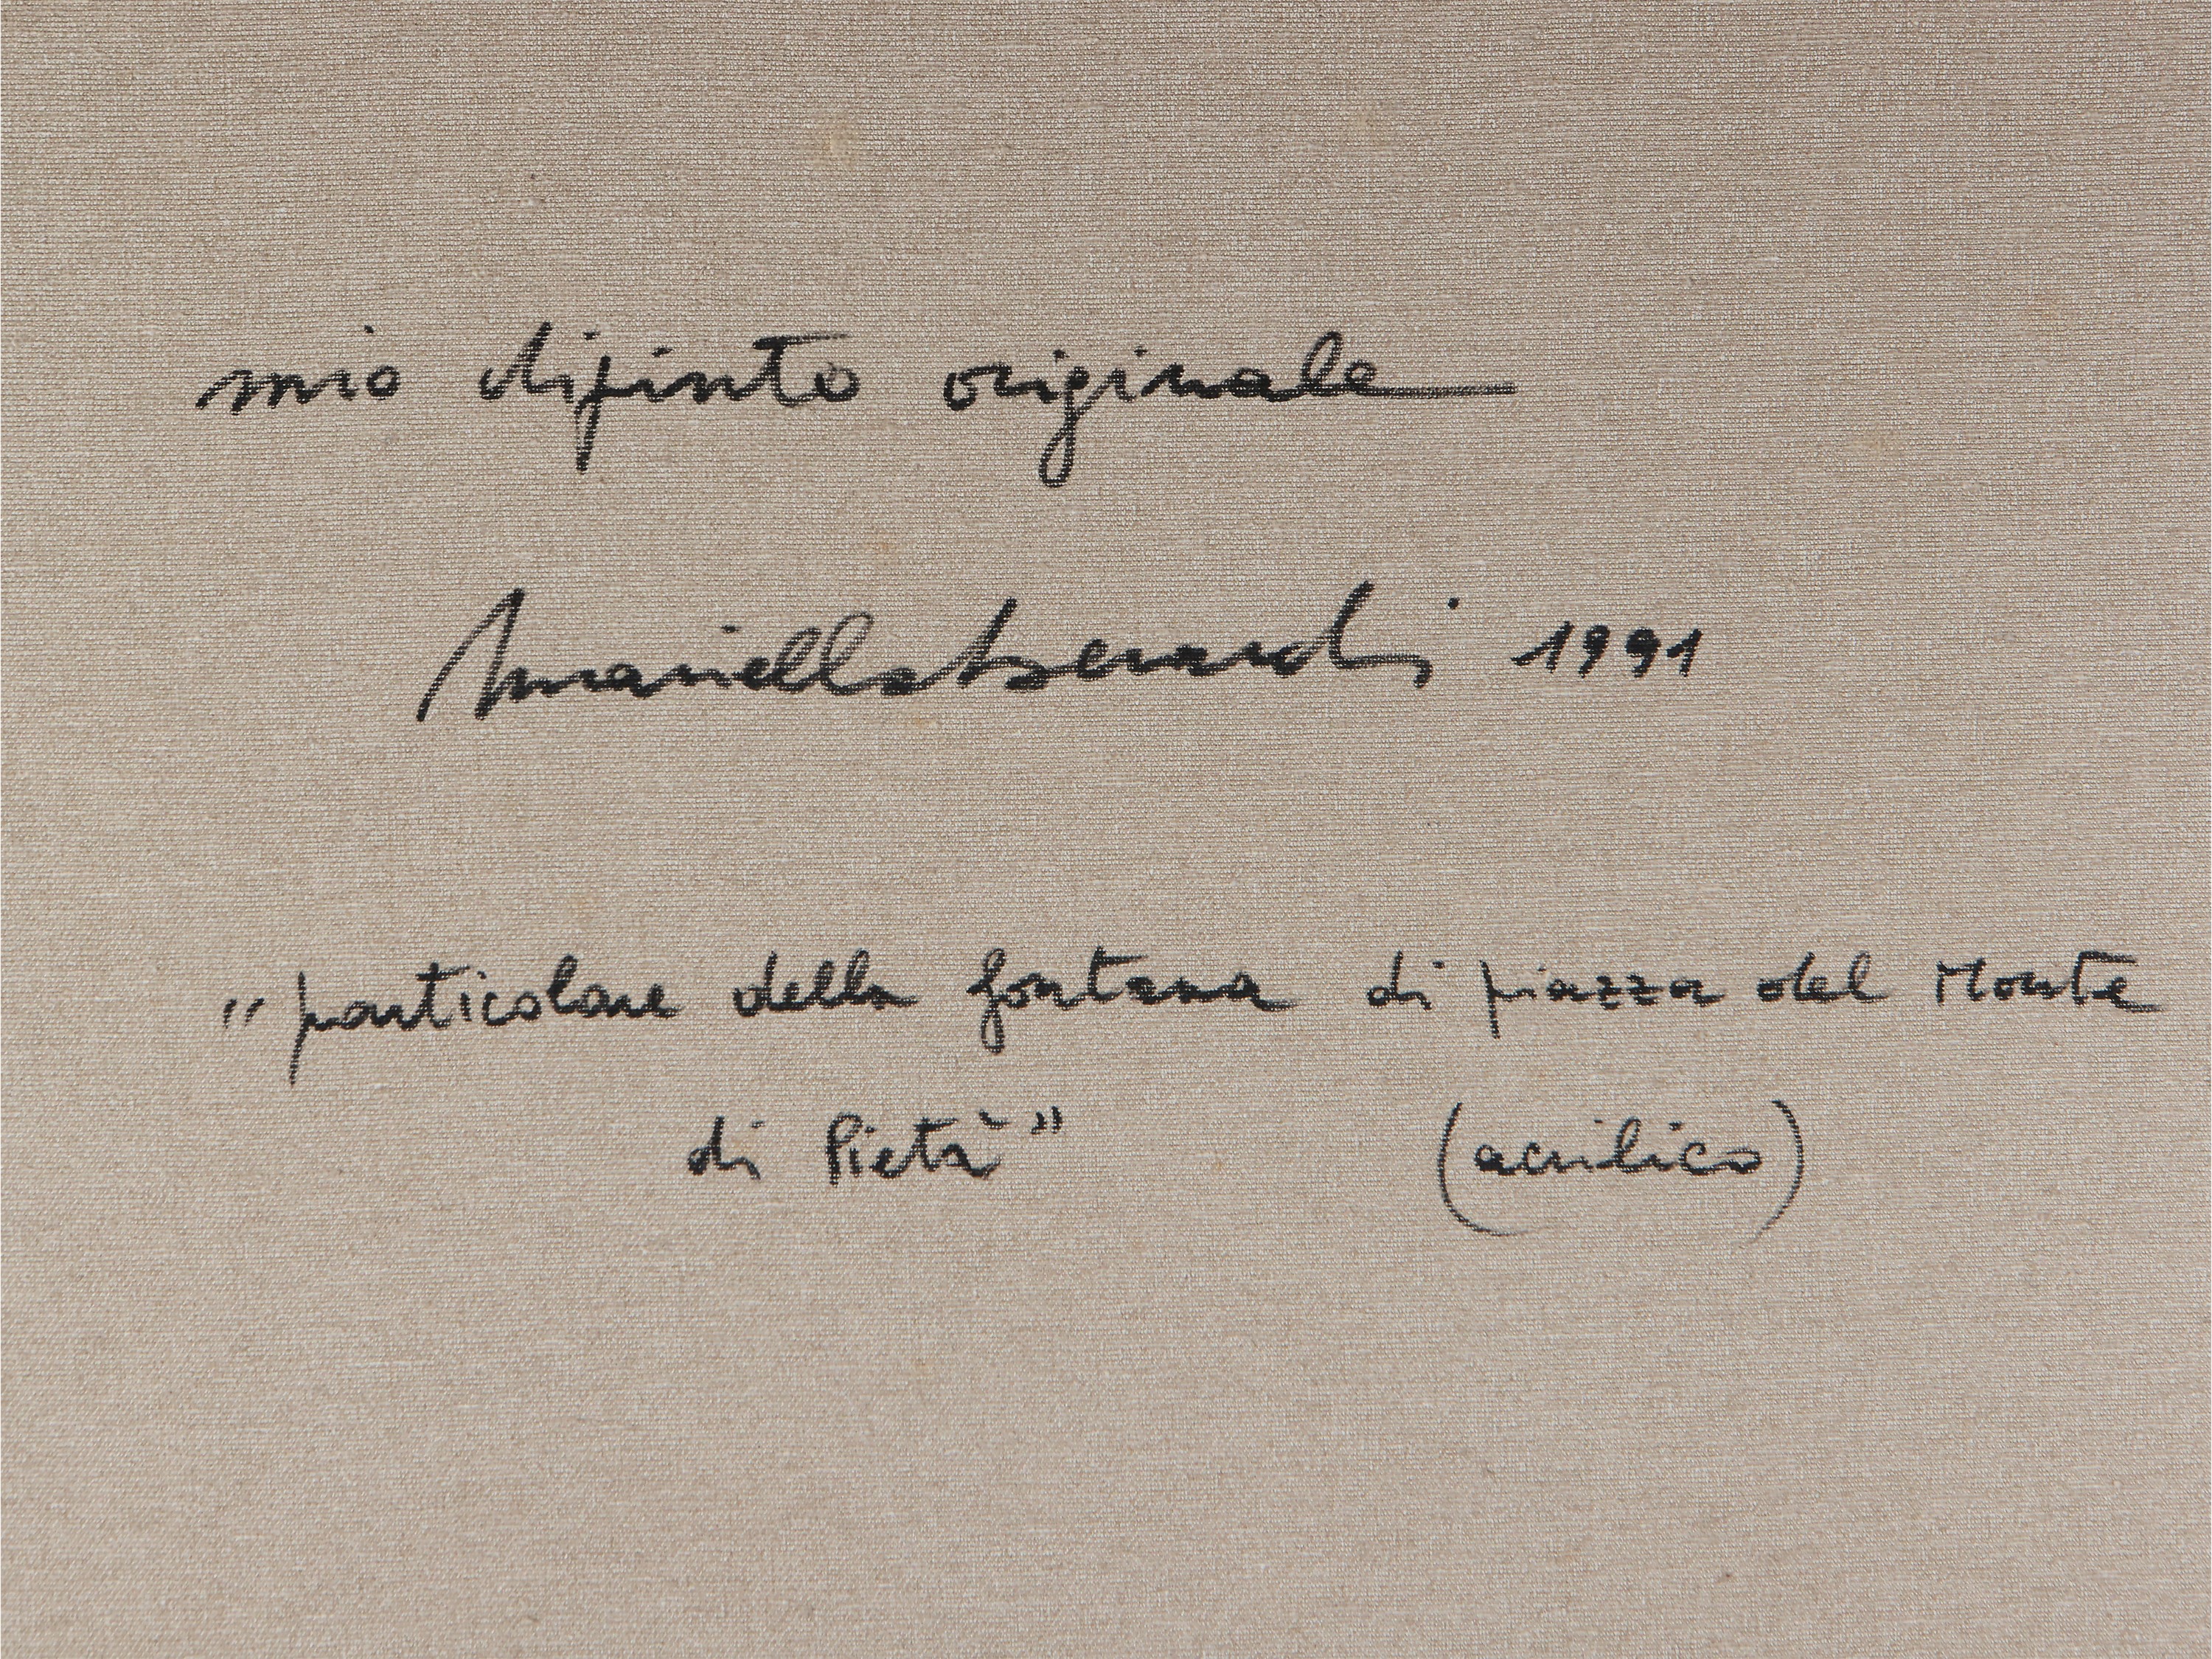 mio dipinto originale
Mariella Berardi 1991
"particolare della fontana di piazza del Monte
di Pietà" (acrilico)